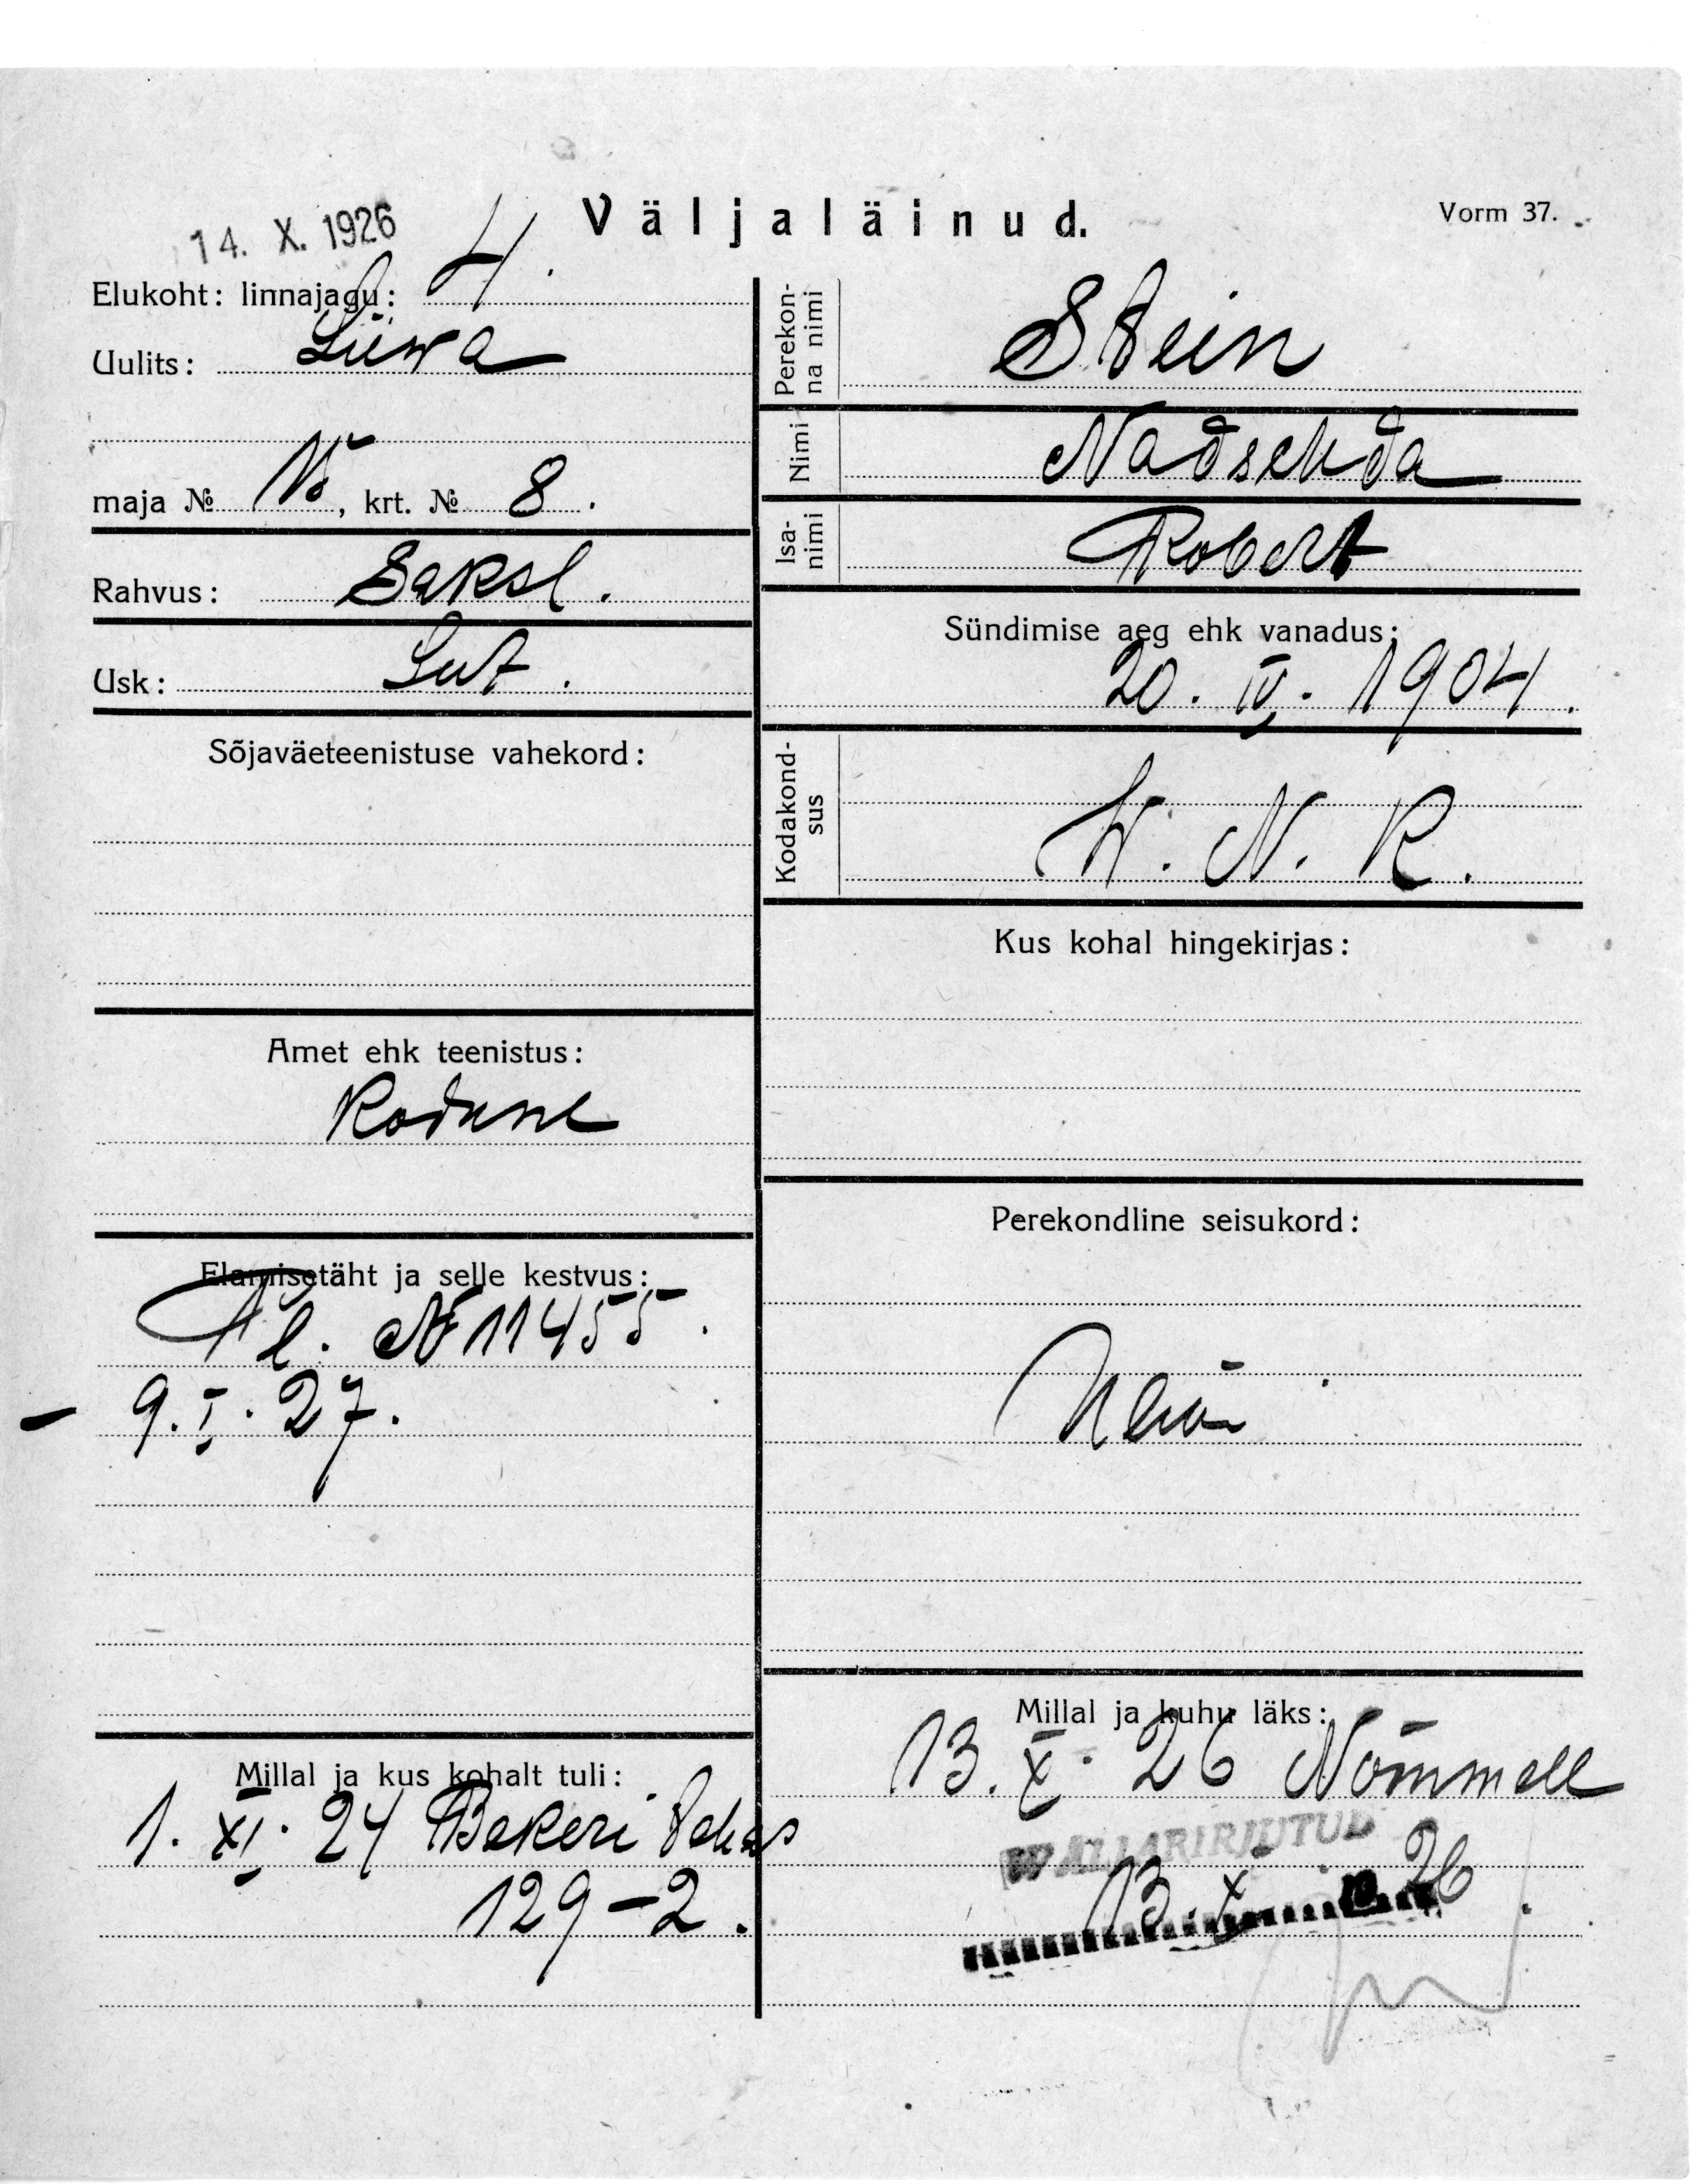 14. X. 1926
Väljaläinud.
Vorm 37.
Elukoht: linnajagu: 4.
Uulits: Liiwa
maja № , krt. № 8.
Rahvus: Saksl.
Usk: Lut.
Sõjaväeteenistuse vahekord:
Amet ehk teenistus:
Kodune
Elamisetäht ja selle kestvus:
№ 11455.
- 9. I. 27.
Millal ja kus kohalt tuli:
1. XI. 24 Bekeri tehas
129-2.
Perekonna nimi
Stein
Nimi
Nadsehda
Isanimi
Robert
Sündimise aeg ehk vanadus:
20. IV. 1904.
Kodakondsus
W. N. R.
Kus kohal hingekirjas:
Perekondline seisukord:
Millal ja kuhu läks:
13. X. 26 Nõmmele
WÄLJAKIRJUTUD
13. X 1926.